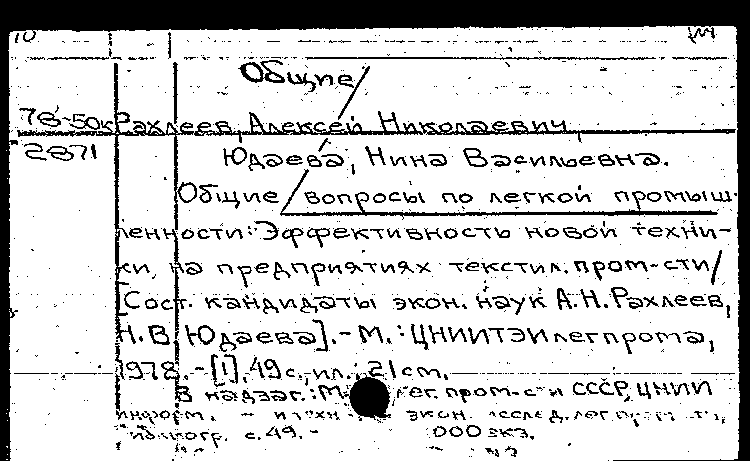 10
Общие
78-50к Рахлеев, Алексей Николаевич,
2871 Юдаева, Нина Васильевна.
Общие вопросы по легкой промыш-
ленности: Эффективность новой техни-
ки, на предприятиях текстил. пром-сти/
[Сост. кандидаты экон. наук А.Н. Рахлеев,
Н.В. Юдаева]. - М.: ЦНИИТЭИлегпрома,
1978. - [1], 49 с., ил.; 21 см.
В надзаг.: М- лег. пром-сти СССР, ЦНИИ
информ. экон. исслед. лег.
с. 49. - 000 экз.